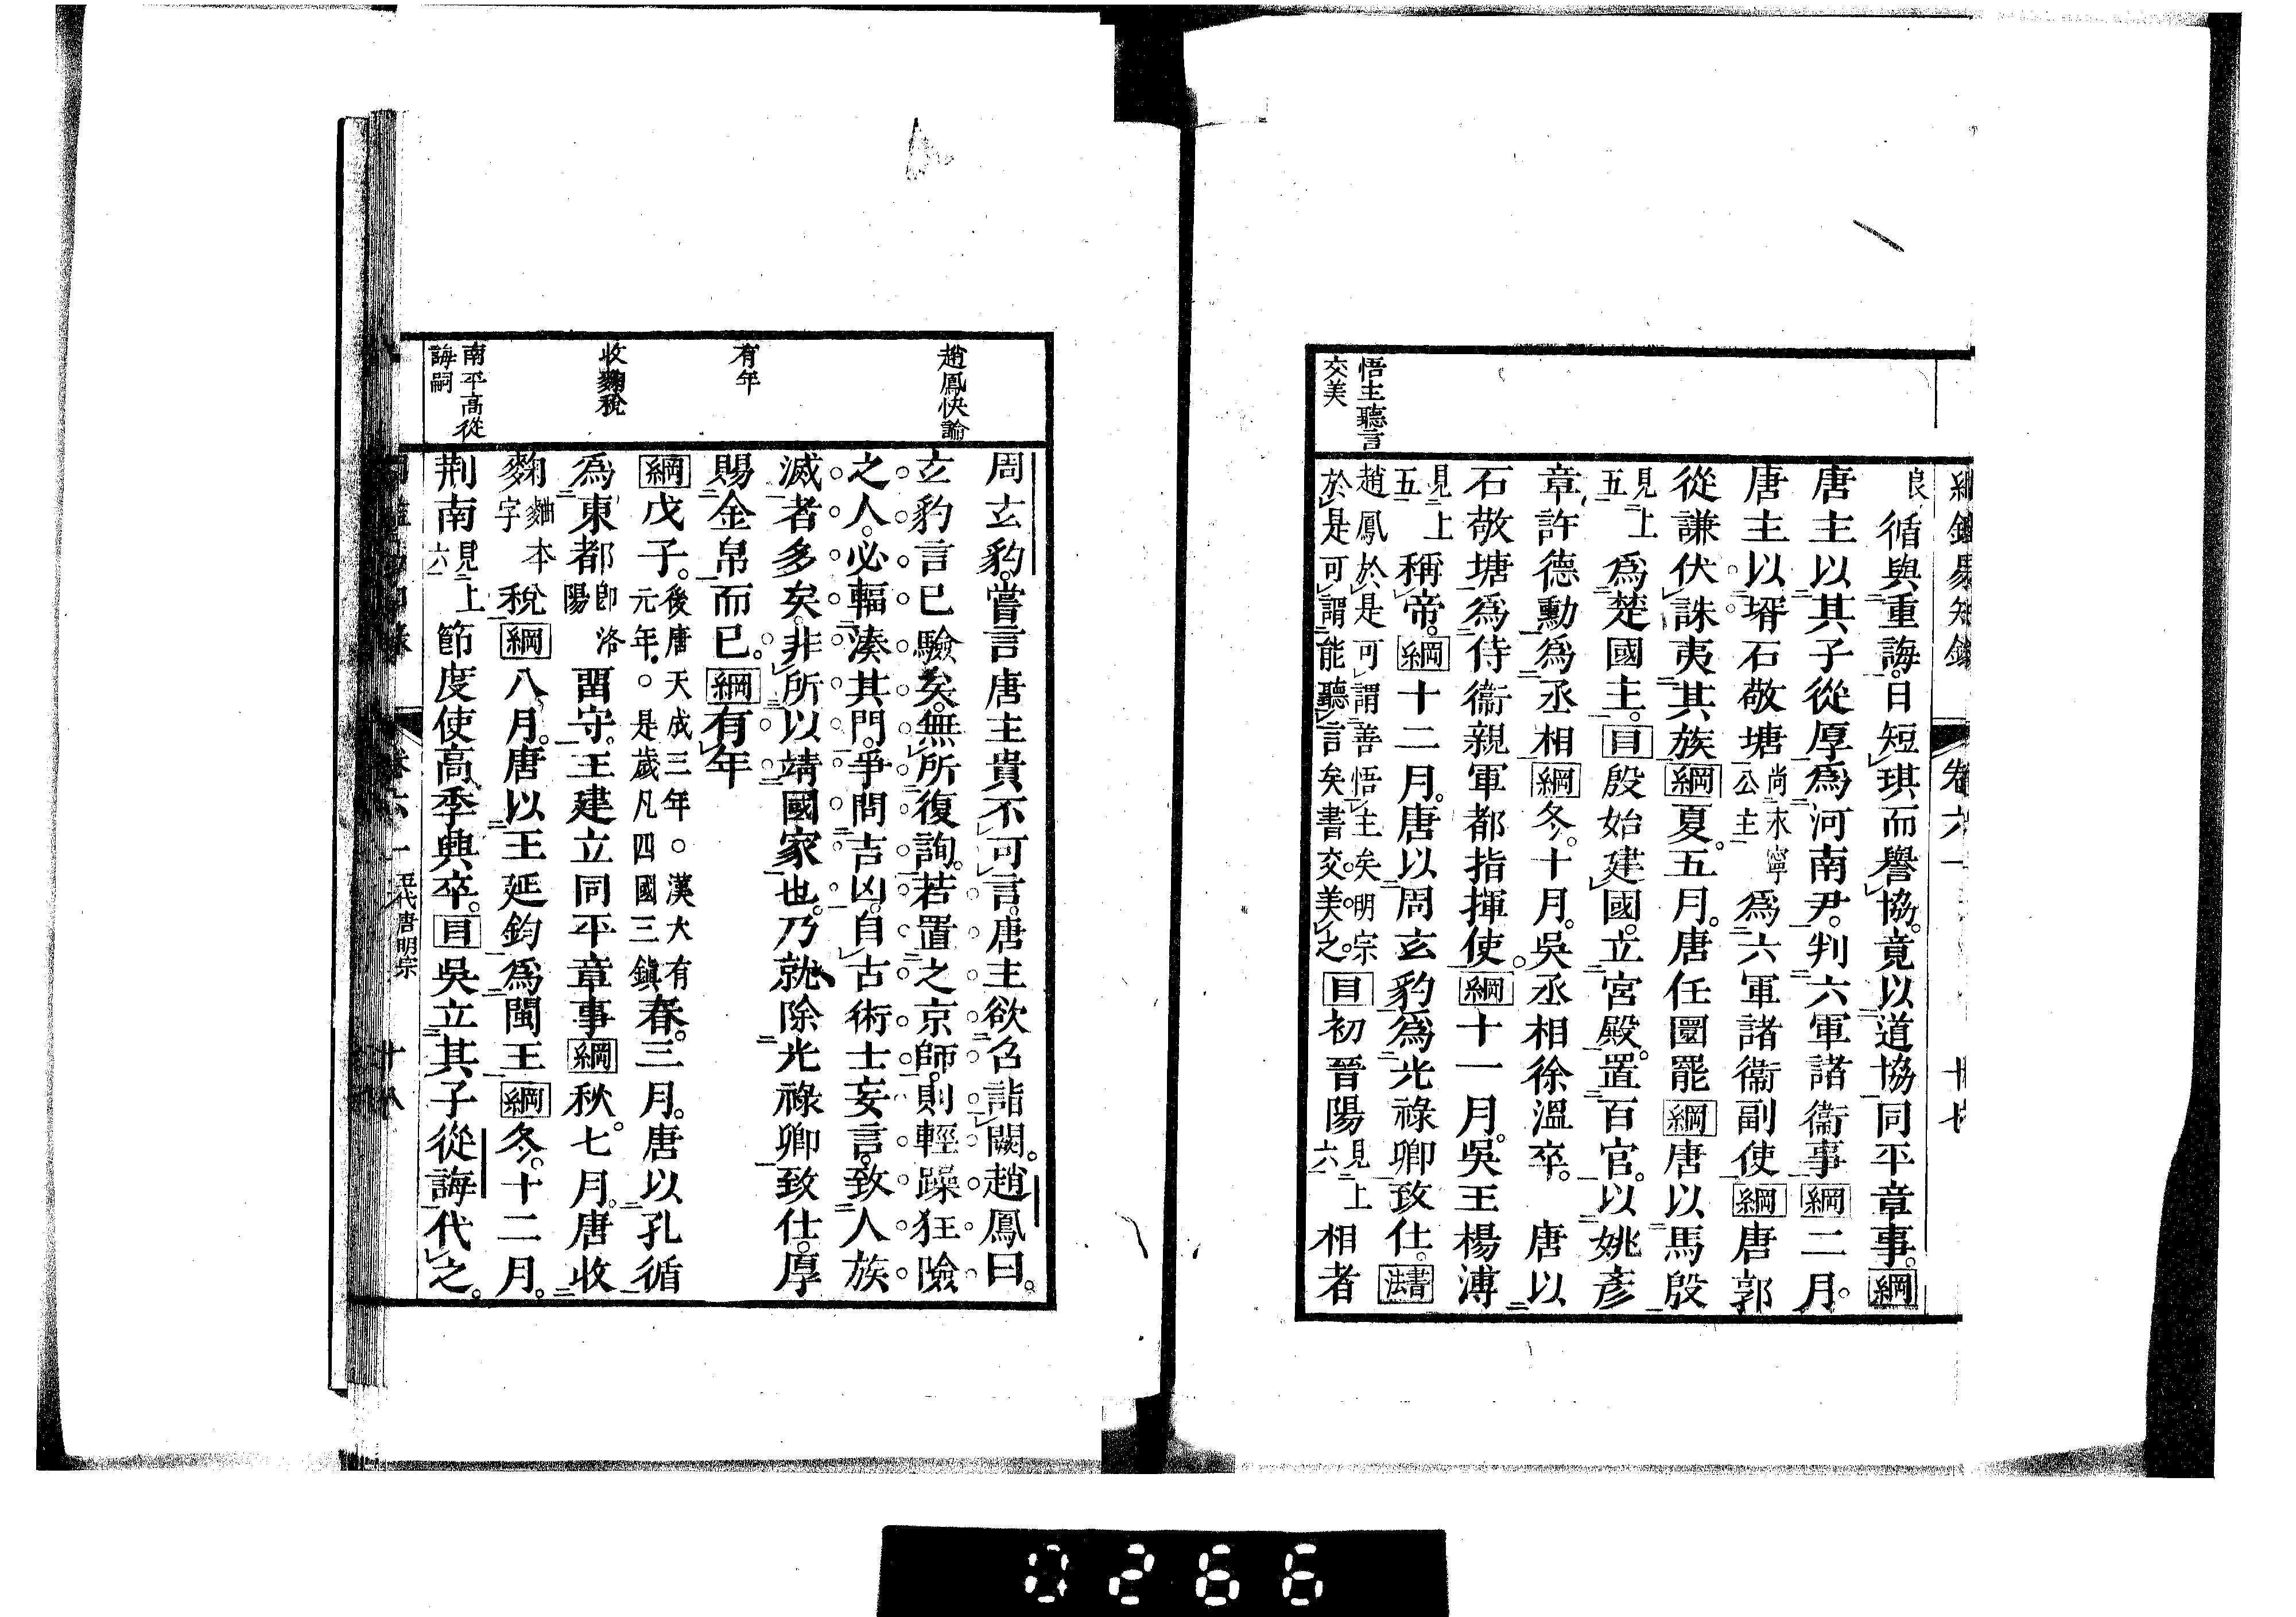 綱鑑易知錄 卷六一 十七
良循與重誨。日短琪而譽協。竟以道協同平章事。綱
唐主以其子從厚爲河南尹。判六軍諸衞事綱二月。
唐主以壻石敬塘尚永寧公主爲六軍諸衞副使綱唐郭
從謙伏誅夷其族綱夏。五月。唐任圜罷綱唐以馬殷
見上五爲楚國主。目殷始建國。立宮殿。置百官。以姚彥
章許德勳爲丞相綱冬。十月。吳丞相徐溫卒。 唐以
石敬塘爲侍衞親軍都指揮使。綱十一月。吳王楊溥
見上五稱帝。綱十二月。唐以周玄豹爲光祿卿致仕。書法
趙鳳於是可謂善悟主矣明宗於是可謂能聽言矣書交美之。目初晉陽見上六相者
悟主聽言交美
周玄豹。嘗言唐主貴不可言。唐主欲召詣闕。趙鳳曰。
玄豹言已驗矣。無所復詢。若置之京師。則輕躁狂險
之人。必輻湊其門。爭問吉凶。自古術士妄言。致人族
滅者多矣。非所以靖國家也。乃就除光祿卿致仕。厚
賜金帛而已。綱有年
綱戊子。後唐天成三年。○漢大有元年。○是歲凡四國三鎮春。三月。唐以孔循
爲東都卽洛陽留守。王建立同平章事綱秋。七月。唐收
麴麯本字稅綱八月。唐以王延鈞爲閩王綱冬。十二月。
荆南見上六節度使高季興卒。目吳立其子從誨代之。
趙鳳快論
有年
收麴稅
南平高從誨嗣
卷六一 五代唐明宗 十八
0266